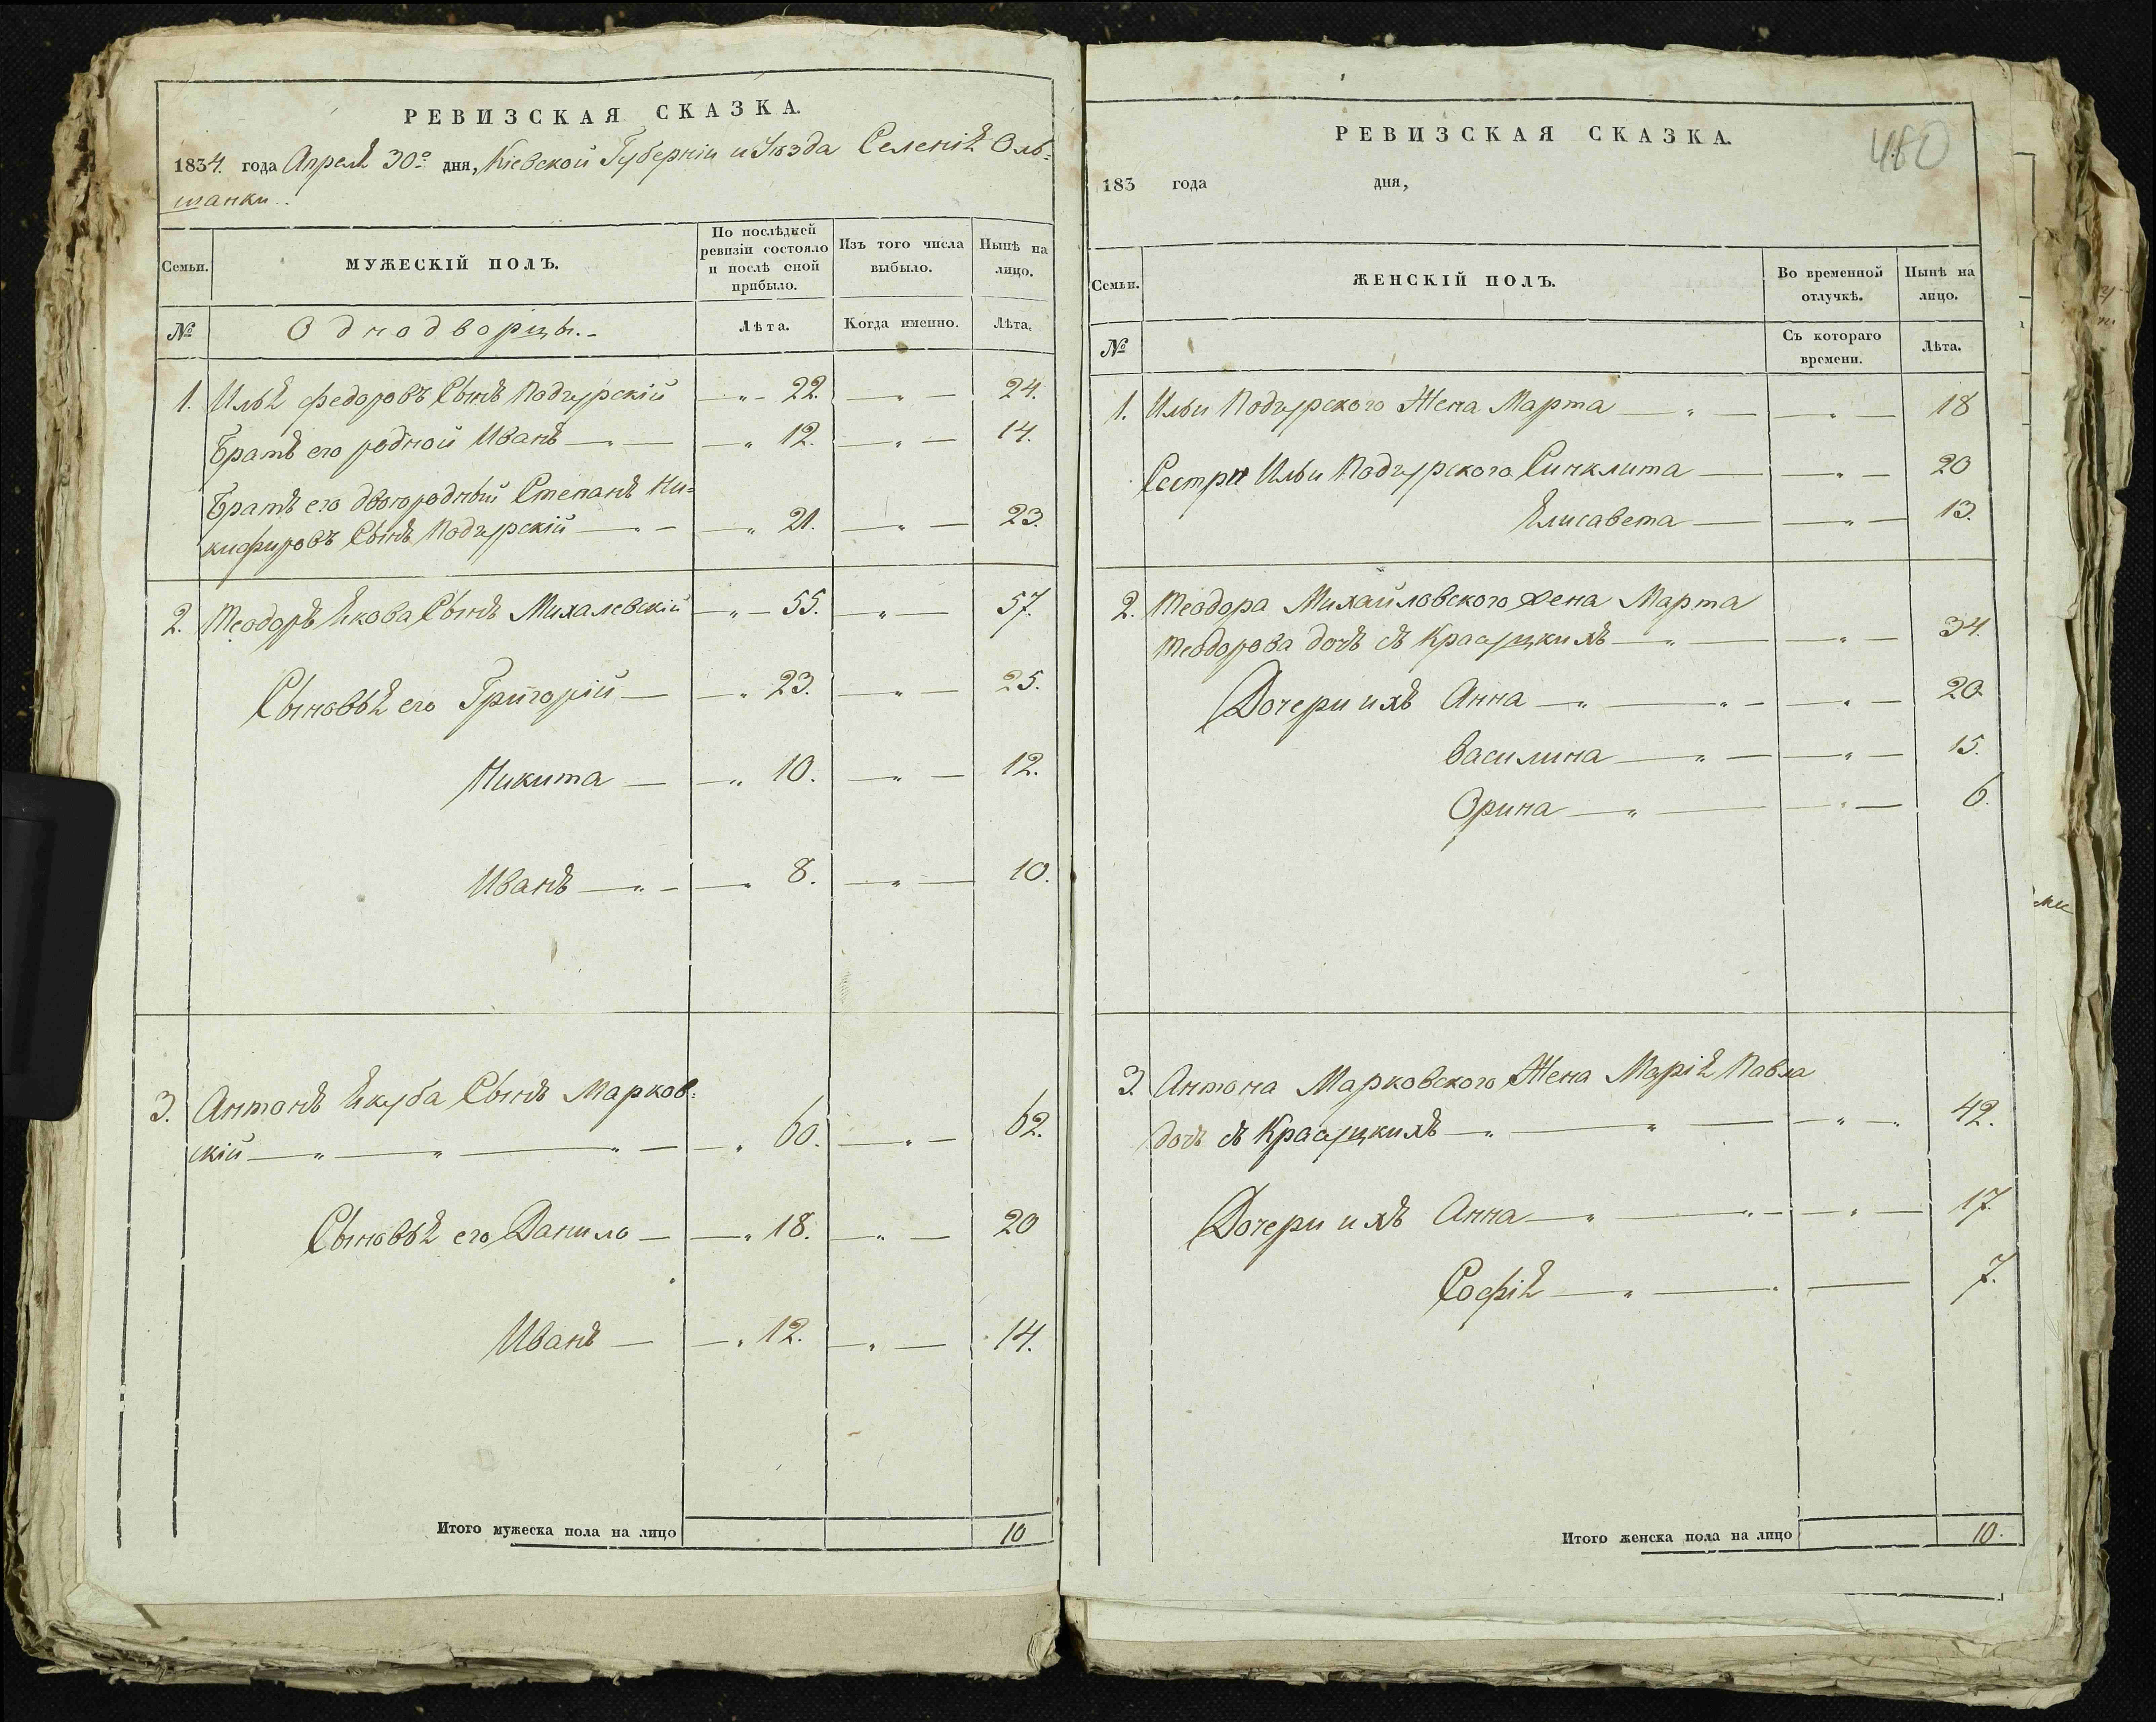 РЕВИЗСКАЯ СКАЗКА.
1834. года Апреля 30го дня, Кіевской Губерніи и Уѣзда Селенія Оль=
шанки.
Семьи.
МУЖЕСКІЙ ПОЛЪ.
По послѣдней ревизіи состояло и послѣ оной прибыло.
Изъ того числа выбыло.
Нынѣ на лицо.
№
Однодворцы.
Лѣта.
Когда именно.
Лѣта.
1. Илья федоровъ Сынъ Подгурскій 22. 24.
Братъ его родной Иванъ 12. 14.
Братъ его двоюродный Степанъ Ни=
кифировъ Сынъ Подгурскій 21. 23.
2. Теодоръ Якова Сынъ Михалевскій 55. 57.
Сыновья его Григорій 23. 25.
Никита 10. 12.
Иванъ 8. 10.
3. Антонъ Якуба Сынъ Марков=
скій 60. 62.
Сыновья его Данило 18. 20
Иванъ 12. 14.
Итого мужеска пола на лицо 10
РЕВИЗСКАЯ СКАЗКА.
480
183 года дня,
Семьи.
ЖЕНСКІЙ ПОЛЪ.
Во временной отлучкѣ.
Нынѣ на лицо.
№
Съ котораго времени.
Лѣта.
1. Ильи Подгурского Жена Марта 18
Сестри Ильи Подгурского Синклита 20
Елисавета 13.
2. Теодора Михайловского жена Марта
Теодорова дочъ съ 34.
Дочери ихъ Анна 20.
Василина 15.
Орина 6.
3. Антона Марковского Жена Марія Павла
дочъ съ 42.
Дочери ихъ Анна 17.
Софія 7.
Итого женска пола на лицо 10.